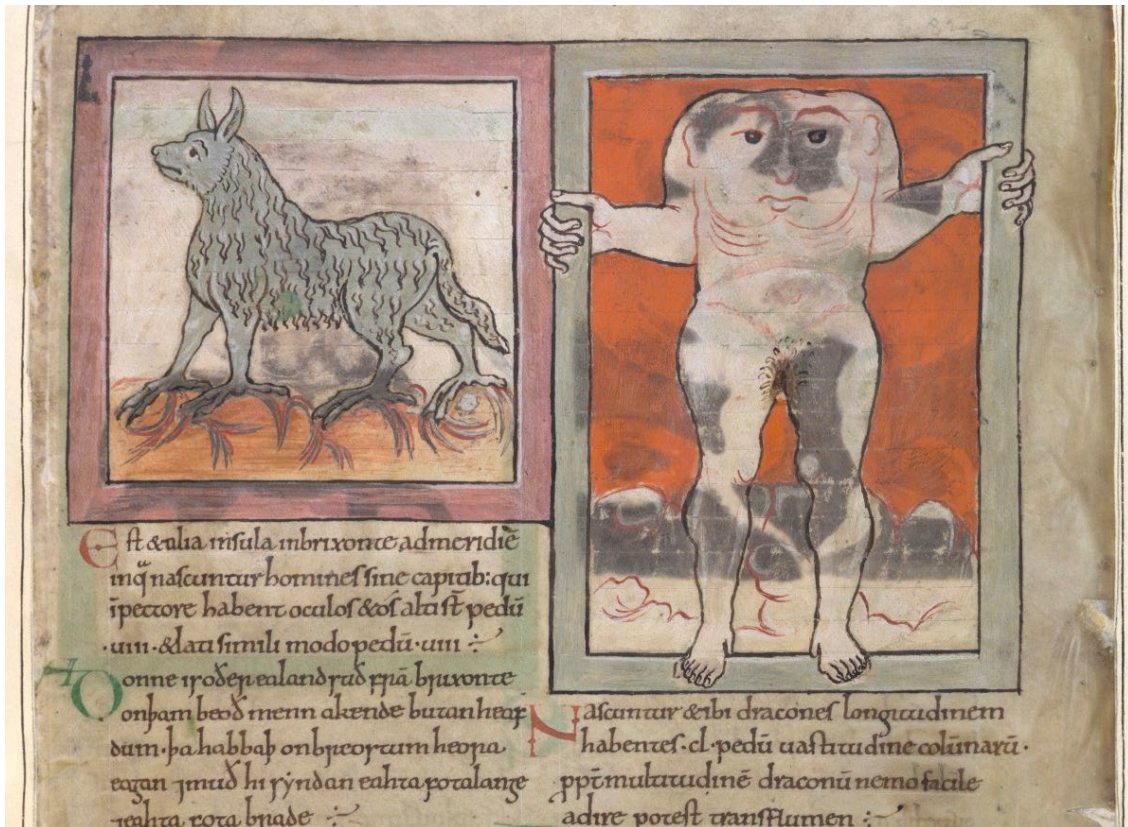 Est & alia insula inbrixonte admeridiē
inq̄ nascuntur homines sine capitib: qui
īpectore habent oculos & os alti sт̄ pedū
·uiii· & lati simili modo pedū · uiii :
Ðonne is oðer ealand suð frā brixonte
onþam beoð menn akende butan heaf
dum · þa habbaþ onbreostum heora
eagan ⁊muð hi syndan eahta fotalange
⁊eahta fota brade :
Nascuntur & ibi dracones longitudinem
habentes · cl · pedū uastitudine colūnarū ·
ppt̄ multitudinē draconū nemo facile
adire potest transflumen :